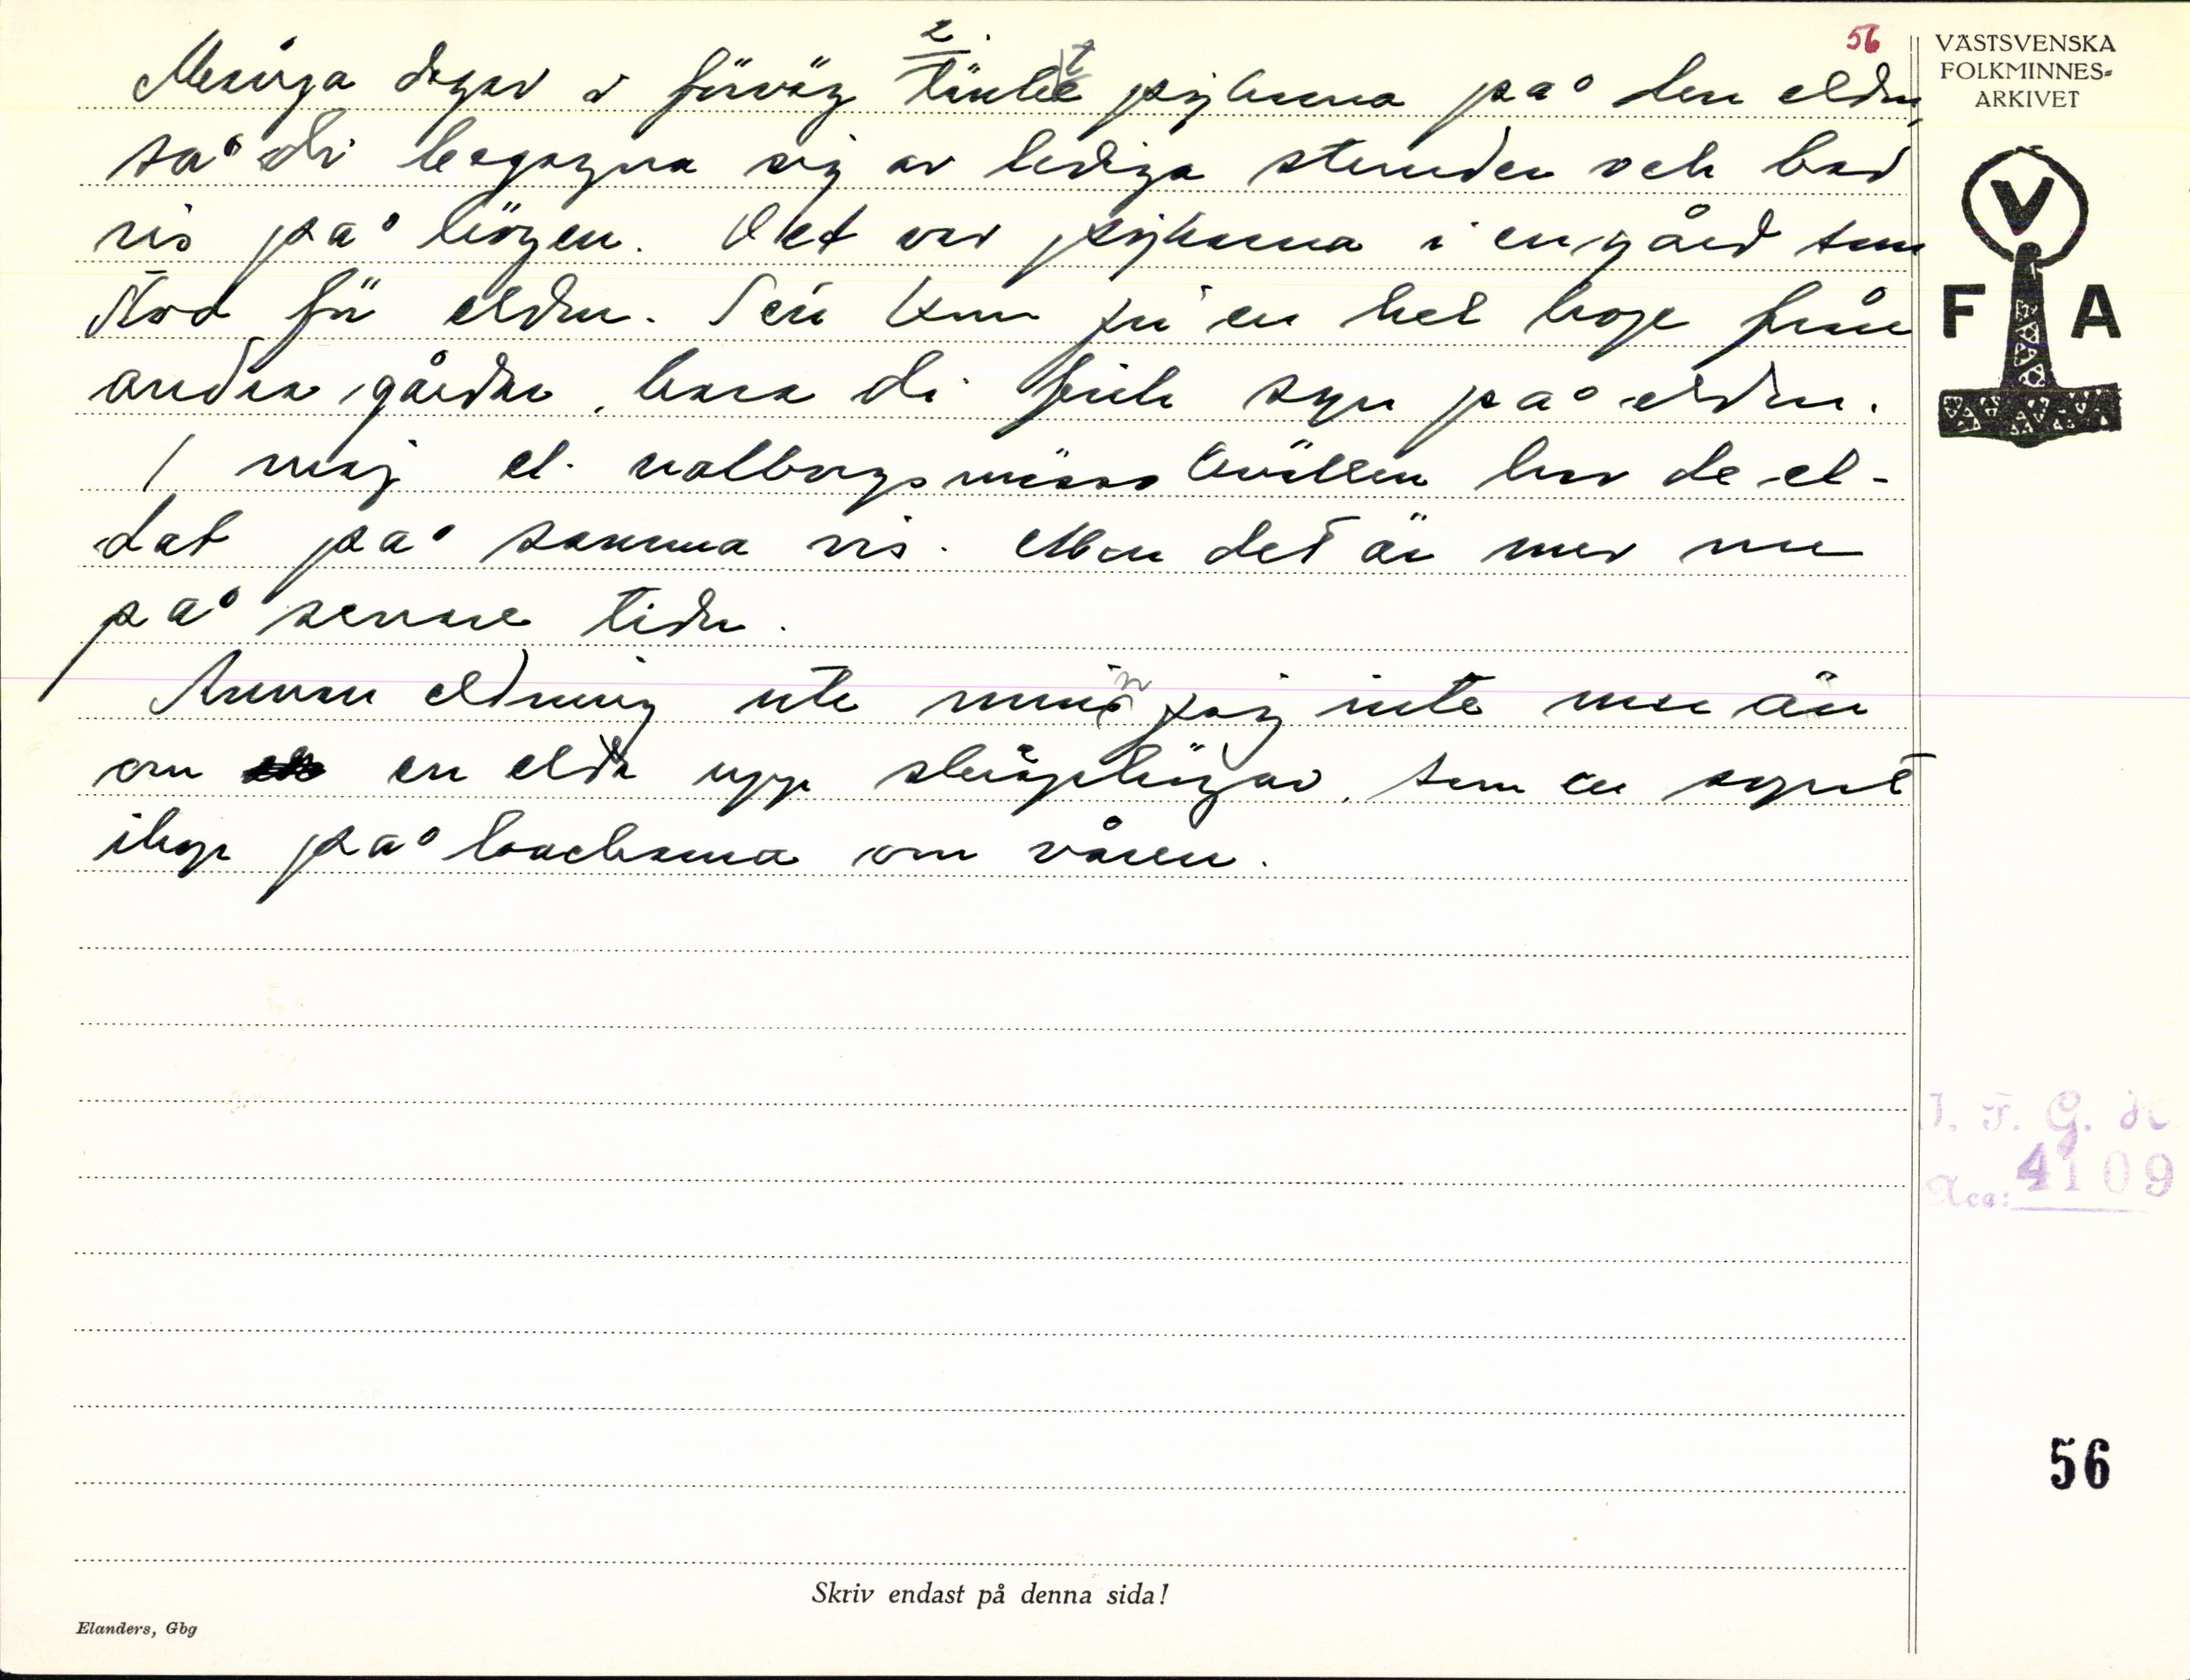 2.
56
Många dagar i förväg tänkte pojkarna på den elden
så di begagna sig av lediga stunder och bar
ris på högen. Det var pojkarna i en gård som
stod för elden. Sen kom ju en hel hoge från
andra gårdar, bara di fick syn på elden.
1 maj el. valborgsmässokvällen har de el-
dat på samma vis. Men det är mer nu
på senare tider.
Annan eldning ute minn jag inte mer än
om en elda upp skräphögar, som en sopat
ihop på backarna om våren.
VÄSTSVENSKA
FOLKMINNES-
ARKIVET
V
F A
I. F. G. H.
Acc: 4109
56
Skriv endast på denna sida!
Elanders, Gbg